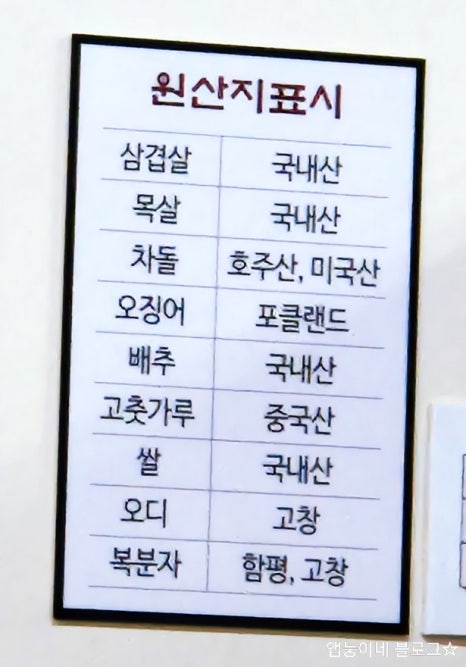 원산지표시
삼겹살 국내산
목살 국내산
차돌 호주산, 미국산
오징어 포클랜드
배추 국내산
고춧가루 중국산
쌀 국내산
오디 고창
복분자 함평, 고창
앱둥이네 블로그☆